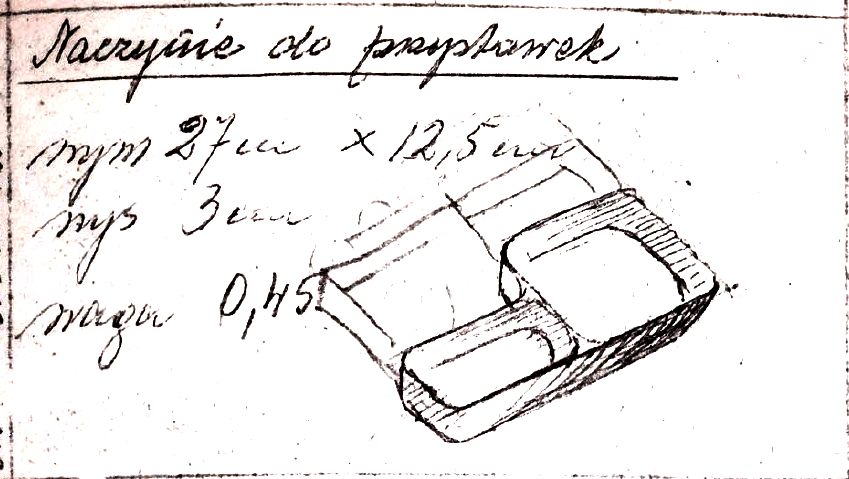 Naczynie do przystawek
wym 27cm x 12,5cm
wys 3cm
waga 0,45